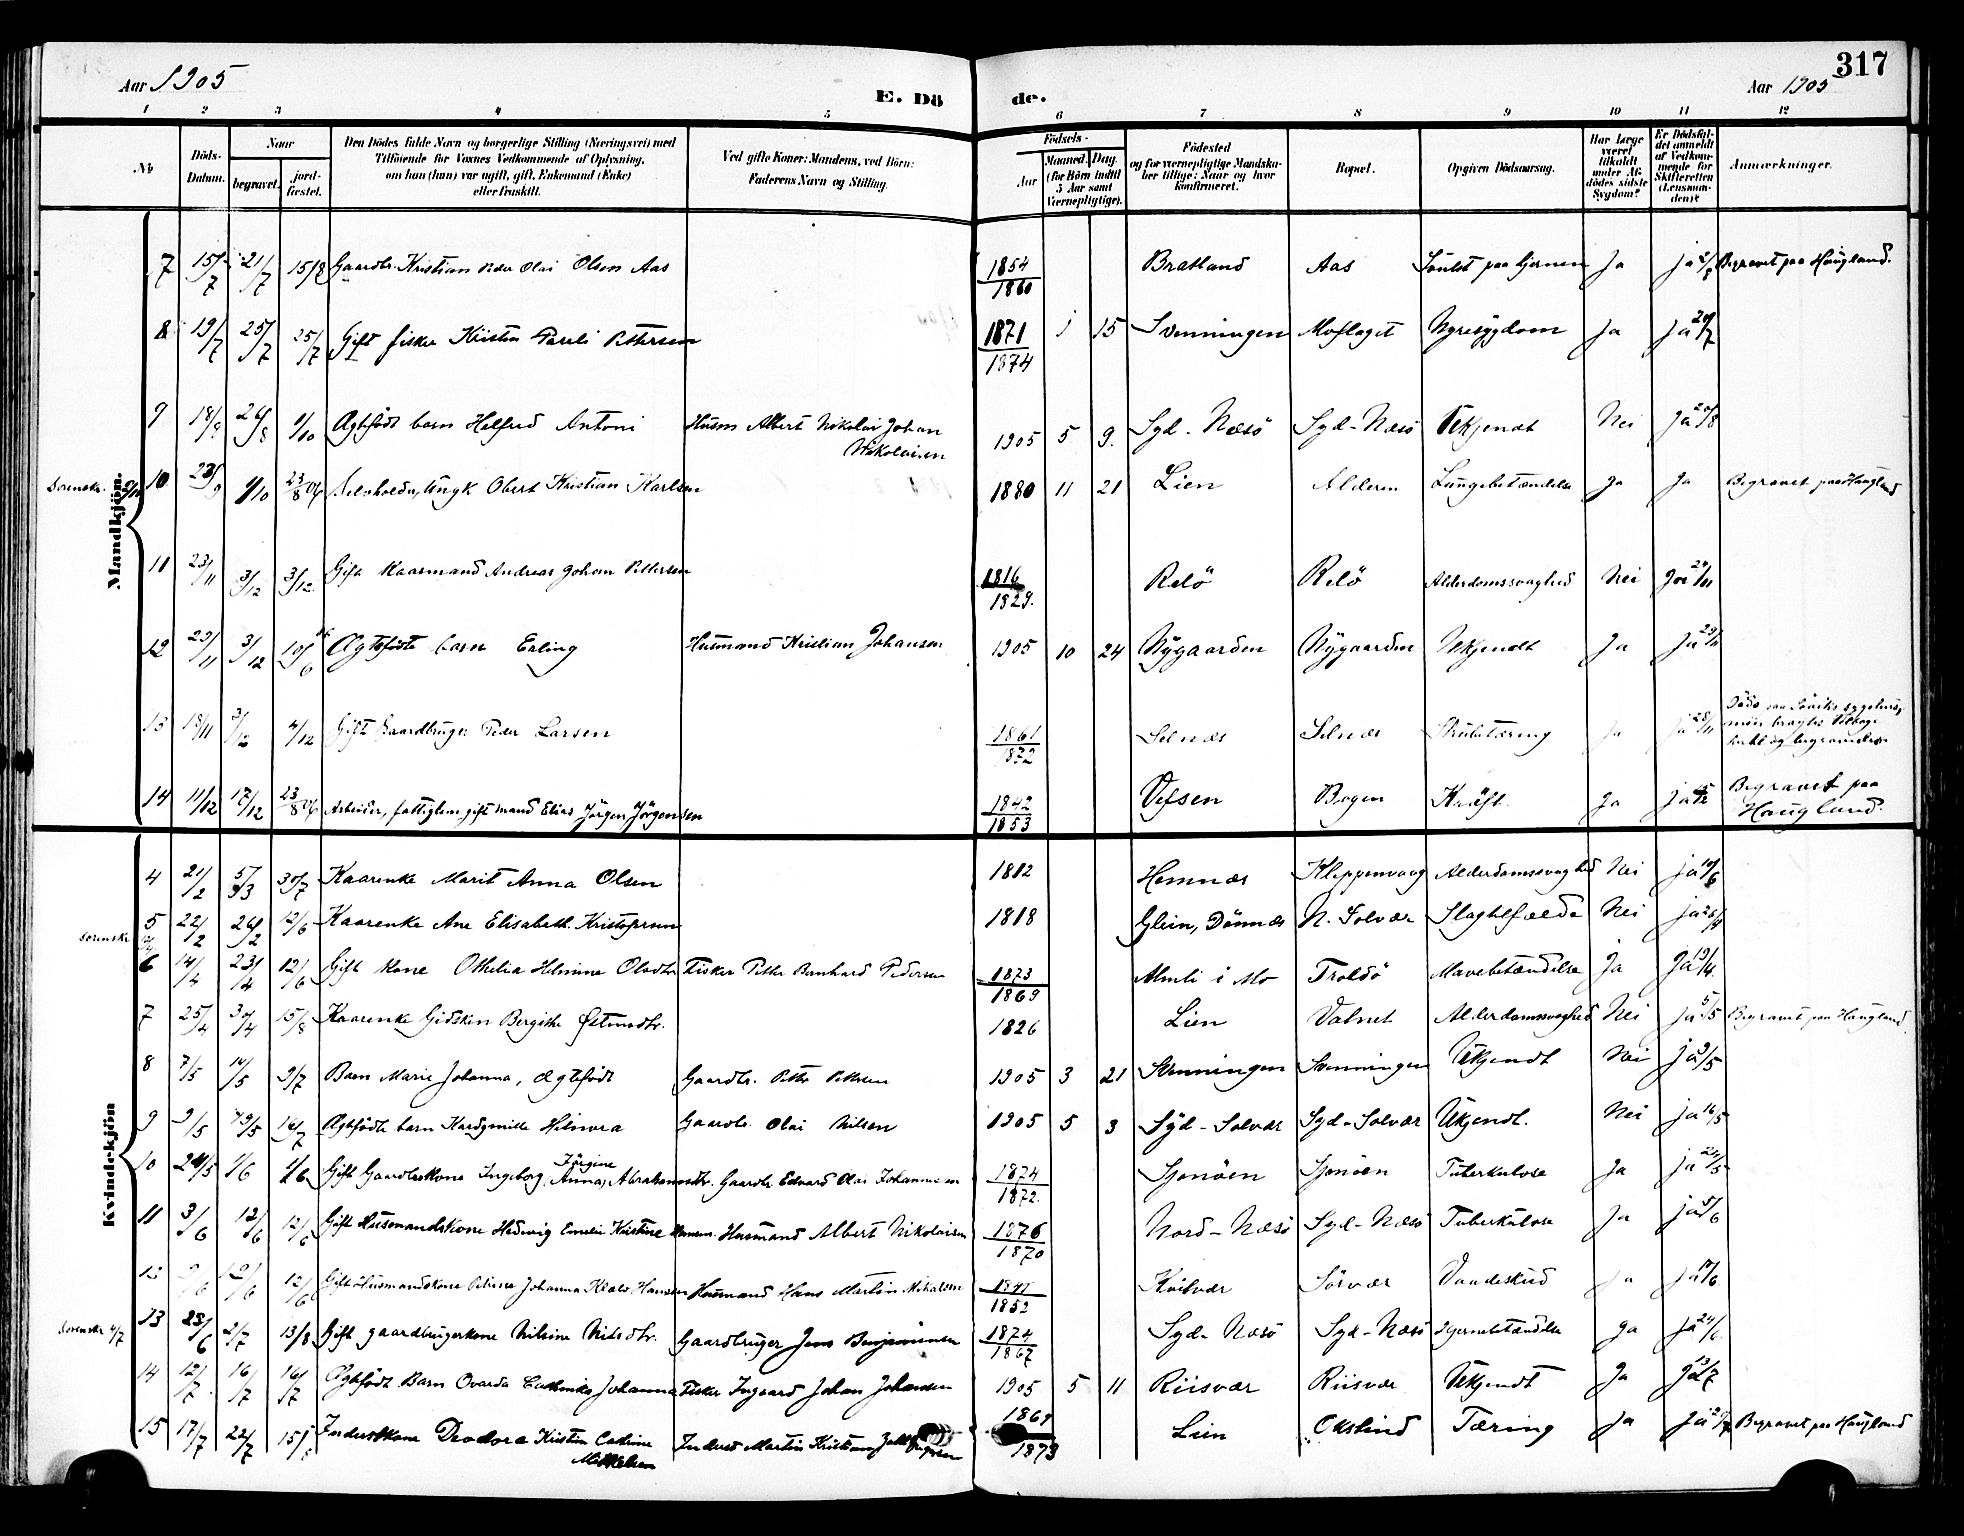 317
Aar 1905
E. Dö de.
Aar 1905
1 2 3 4 5 6 7 8 9 10 11 12
No
Döds-Datum.
Naar
begravet.
jord-fæstet.
Den Dödes fulde Navn og borgerlige Stilling (Næringsvei) med
Tilföiende for Voxnes Vedkommende af Oplysning,
om han (hun) var ugift, gift, Enkemand (Enke)
eller fraskilt.
Ved gifte Koner: Mandens, ved Börn:
Faderens Navn og Stilling.
Födsels-
Aar
Maaned. Dag.
(for Börn indtil
5 Aar samt
Værnepligtige).
Födested
og for værnepligtige Mandska-
ber tillige: Naar og hvor
konfirmeret.
Bopæl.
Opgiven Dödsaarsag.
Har Læge
været
tilkaldt
under Af-
dödes sidste
Sygdom?
Er Dödsfal-
det anmeldt
af Vedkom-
mende for
Skifteretten
(Lensman-
den)?
Anmærkninger.
Mandkjön.
7 15/7 21/7 15/8 Gaardbr. Kristian Peder Olai Olsen Aas 1854 1860 Bratland Aas paa hjernen Ja ja Begravet paa Haugland.
8 19/7 25/7 25/7 Gift fisker Kristen Pareli Pettersen 1871 1874 1 15 Svenningen Moflaget Nyresygdom Ja Ja 20/7
9 18/8 1/10 Ægtefödt barn Helfred Antoni Husm Albert Nikolai Johan Nikolaisen 1905 5 9. Syd-Næsö Syd-Næsö Ukjendt Nei Ja 20/8
Sorenskr. 10 1/10 23/8 06 Ungk Obert Kristian Karlsen 1880 11 21 Lien Alderen Lungebetændelse Ja Ja Begravet paa Haugland
11 23/11 3/12 3/12. Gift Kaarmand Andreas Johan Pettersen 1816 1829. Relö Relö Alderdomssvaghed Nei Ja 24/11
12 23/11 3/12 10/6 06 Ægtefödte barn Erling Husmand Kristian Johansen 1905 10 24 Nygaarden Nygaarden Ukjendt Ja Ja 29/11
13 18/11 3/12 4/12 Gift Gaardbruger Peder Larsen 1861 1872 Selnæs Selnæs Strubetæring Ja Ja 28/11
14 11/12 17/12 23/8 06 Arbeider, fattiglem, gift mand Elias Jörgen Jörgensen 1842 1853 Vefsen Bogen Kræft. Ja Ja Begravet paa Haugland.
Kvindekjön
4 21/2 5/3 30/7 Kaarenke Marit Anna Olsen 1812 Hemnæs Kleppenvaag Alderdomssvaghed Nei ja 10/6
Sorenskr 5 22/2 26/2 12/6 Kaarenke Ane Elisabeth Kristofersen 1818 Glein, Dönnæs N. Solvær Slagtilfælde Nei ja
6 14/4 23/4 12/6 Gift kone Othelia Helmine Olsdtr Fisker Petter Bernhard Pedersen 1873 1869 Almli i Mo Troldö Mavebetændelse Ja Ja 19/4.
7 25/4 30/4 15/8 Kaarenke Gidsken Bergithe Östensdtr. 1826 Lien Vatnet Alderdomssvaghed Nei Ja 5/5 Begravet paa Haugland
8 7/5 14/5 9/7 Barn Marie Johanna, ægtefödt Gaardbr. Petter Pettersen 1905 3 21 Svenningen Svenningen Ukjendt Nei ja 9/5
9 9/5 16/7 Ægtefödte barn Hilmora Gaardbr. Olai Nilsen 1905 5 3 Syd-Solvær Syd-Solvær Ukjendt. Nei ja 16/5
10 24/5 1/6 1/6 Gift Gaardbrskone Ingeborg Jörgine Anna Abrahamsdtr. Gaardbr Edvard Olai Johannesen 1874 1872. Sjonöen Sjonöen Tuberkulose Ja ja 24/5
11 3/6 12/6 12/6 Gift Husmandskone Hedevig Emelie Kristine Hansen. Husmand Albert Nikolaisen 1876 1870 Nord-Næsö Syd-Næsö Tuberkulose Ja ja 5/6
12 9/6 12/6 12/6 Gift Husmandskone Petrine Johanna Hansen Husmand Hans Martin Mikalsen 1852 Kvitvær Sörvær Vaadeskud Ja ja
Sorenskr 4/7 13 23/6 2/7 13/8 Gift gaardbrugerkone Nilsine Nilsdtr. Gaardbruger Jens Benjaminsen 1874 1867 Syd-Næsö Syd-Næsö Hjernebetændelse Ja ja 24/6.
14 12/7 16/7 16/7 Ægtefödt Barn Ovarda Cathinka Johanna Fisker Ingvard Johan Johansen 1905 5 11 Riisvær Riisvær Ukjendt Ja Ja 13/7
15 17/7 22/7 15/8 Inderstkone Deodora Kristin Catrine Mikkelsen Inderst Martin Kristian 1869 1873 Lien Okstind Tæring Ja Ja Begravet paa Haugland